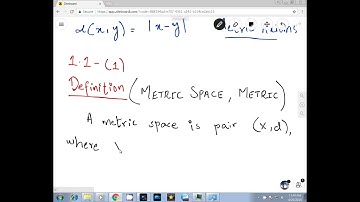 d(x,y) = |x-y|
1.1-(1)
Definition (METRIC SPACE, METRIC)
A metric space is pair (X,d),
where